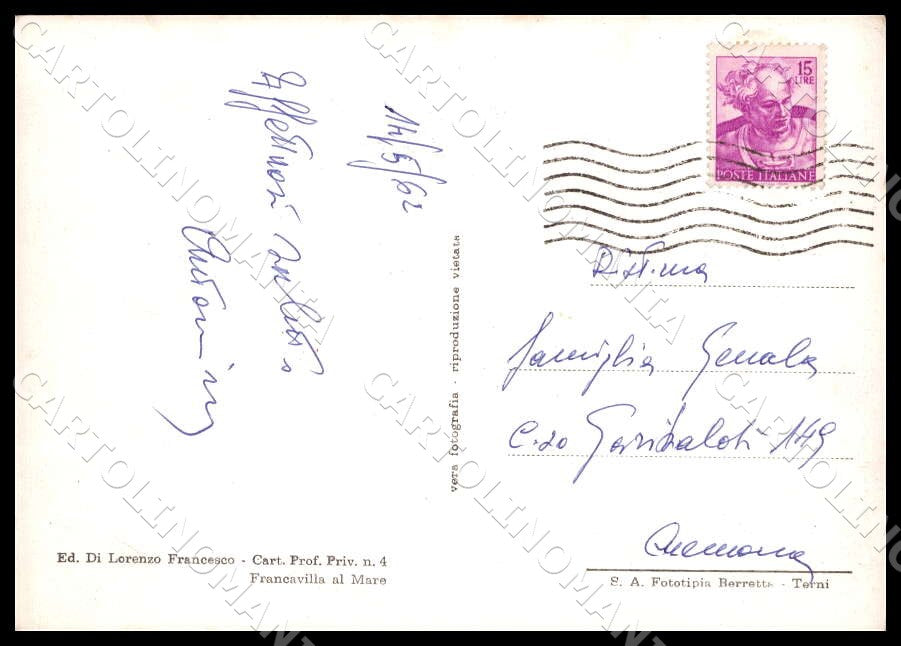 14/5/62
Affettuosi saluti
15
LIRE
POSTE ITALIANE
famiglia
C.so Garibaldi 149
Cremona
vera fotografia - riproduzione vietata
Ed. Di Lorenzo Francesco - Cart. Prof. Priv. n. 4
Francavilla al Mare
S. A. Fototipia Berretta - Terni
CARTOLINOMANIA